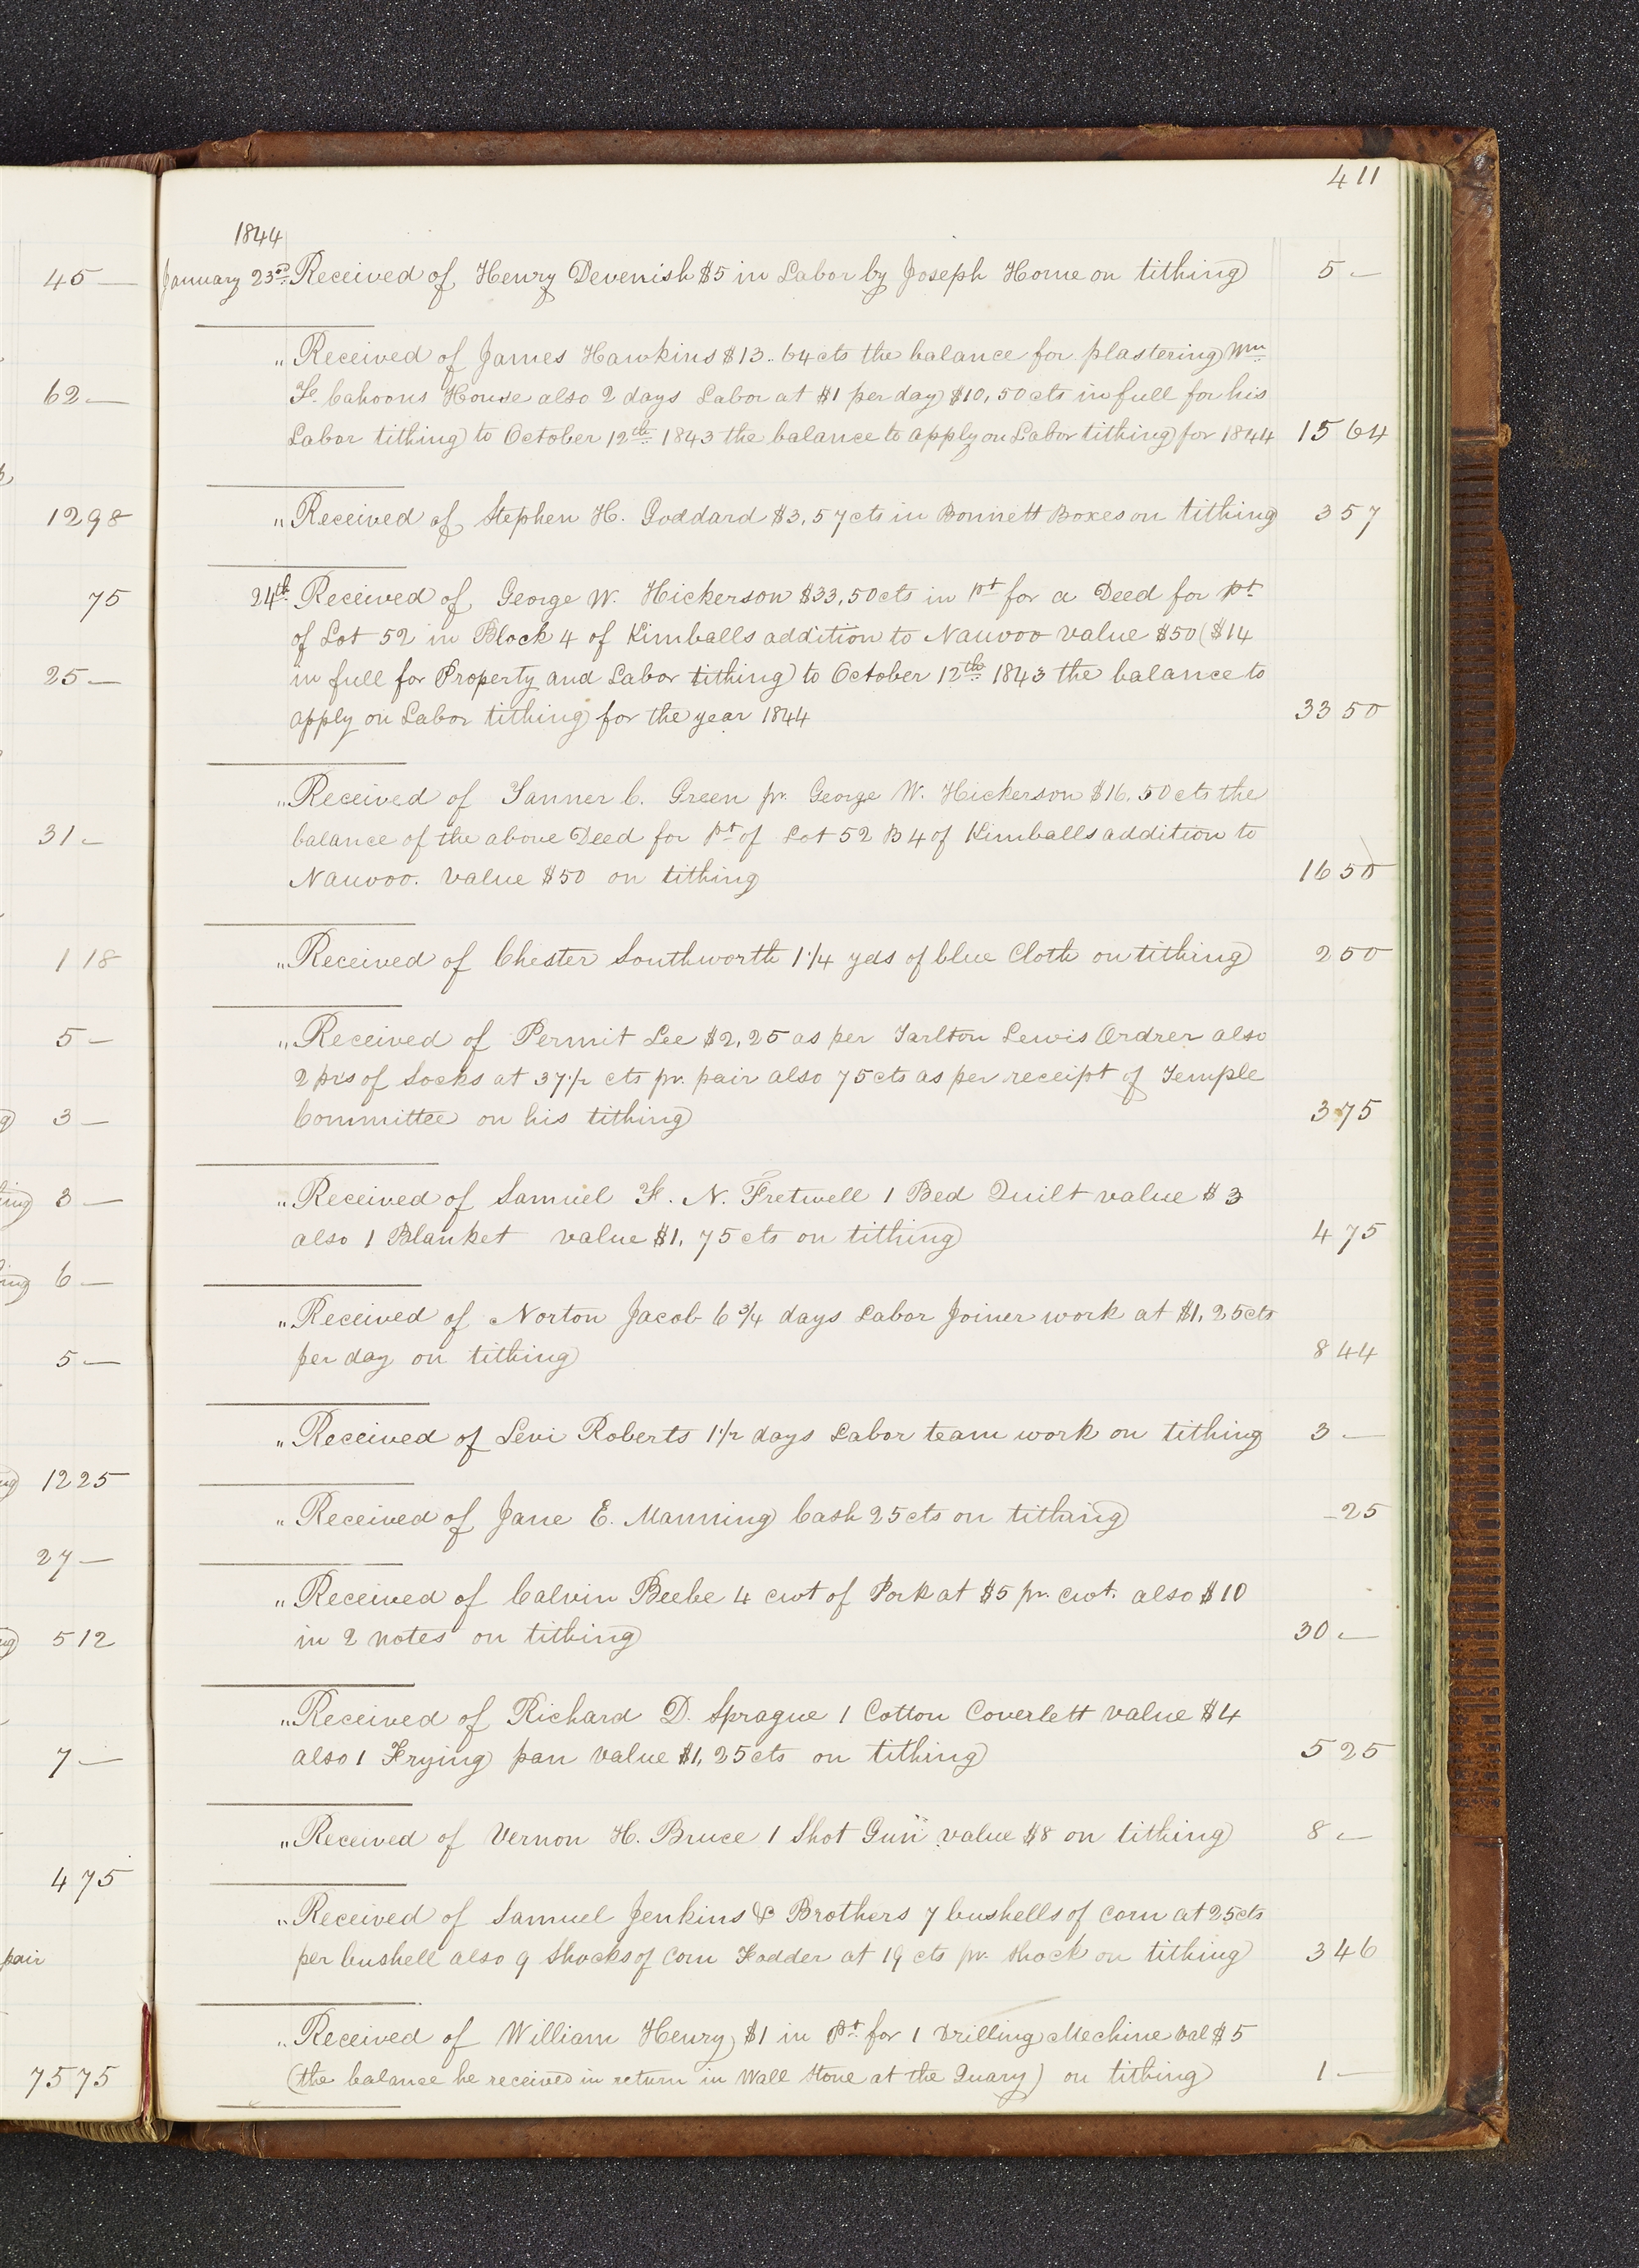 411
1844
45 —
January 23rd Received of Henry Devenish $5 in Labor by Joseph Horne on tithing 5 —
" Received of James Hawkins $13..64cts the balance for plastering Wm
62 —
F. Cahoons House also 2 days Labor at $1 per day $10,50cts in full for his
Labor tithing to October 12th 1843 the balance to apply on Labor tithing for 1844 15 64
12 98
" Received of Stephen H. Goddard $3,57cts in Bonnett Boxes on tithing 3 57
75
24th Received of George W. Hickerson $33,50cts in pt for a Deed for pt
of Lot 52 in Block 4 of Kimballs addition to Nauvoo value $50 ($14
25 —
in full for Property and Labor tithing to October 12th 1843 the balance to
apply on Labor tithing for the year 1844 33 50
" Received of Tanner C. Green pr. George W. Hickerson $16,50cts the
31 —
balance of the above Deed for Pt of Lot 52 B 4 of Kimballs addition to
Nauvoo. value $50 on tithing 16 50
1 18
" Received of Chester Southworth 1 1/4 yds of blue Cloth on tithing 2 50
5 —
" Received of Permit Lee $2,25 as per Tarlton Lewis Ordrer also
2 prs of Socks at 37 1/2 cts pr. pair also 75cts as per receipt of Temple
3 —
Committee on his tithing 3 75
3 —
" Received of Samuel F. N. Fretwell 1 Bed Quilt value $3
also 1 Blanket value $1,75cts on tithing 4 75
6 —
" Received of Norton Jacob 6 3/4 days Labor Joiner work at $1,25cts
5 —
per day on tithing 8 44
" Received of Levi Roberts 1 1/2 days Labor team work on tithing 3 —
12 25
" Received of Jane E. Manning Cash 25cts on tithing — 25
27 —
" Received of Calvin Beebe 4 cwt of Pork at $5 pr. cwt. also $10
5 12
in 2 notes on tithing 30 —
" Received of Richard D. Sprague 1 Cotton Coverlett value $4
7 —
also 1 Frying pan value $1,25cts on tithing 5 25
" Received of Vernon H. Bruce 1 Shot Gun value $8 on tithing 8 —
4 75
" Received of Samuel Jenkins & Brothers 7 bushells of Corn at 25cts
pair
per bushell also 9 Shocks of Corn Fodder at 19 cts pr. Shock on tithing 3 46
" Received of William Henry $1 in Pt for 1 Drilling Mechine Val $5
75 75
(the balance he received in return in Wall Stone at the Quary) on tithing 1 —